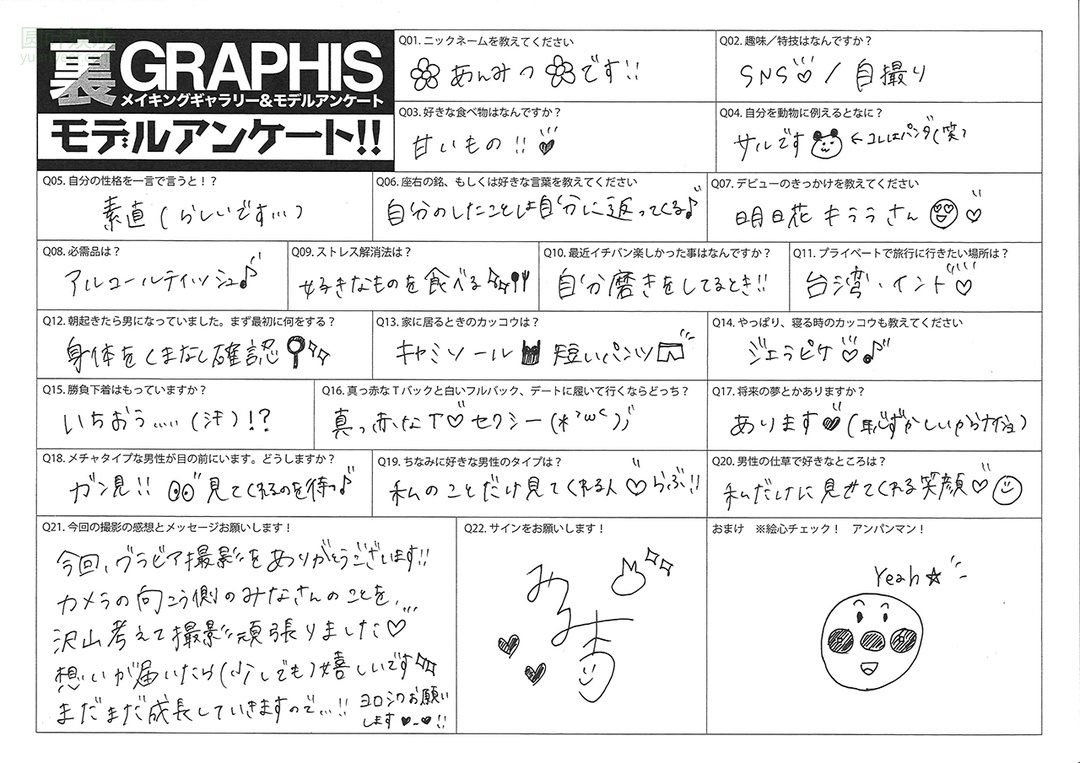 裏GRAPHIS
メイキングギャラリー&モデルアンケート
モデルアンケート!!
Q01. ニックネームを教えてください
あんみつ です!!
Q02. 趣味／特技はなんですか？
SNS♡ / 自撮り
Q03. 好きな食べ物はなんですか？
甘いもの!!♥
Q04. 自分を動物に例えるとなに？
サルです ←コレはパンダ(笑)
Q05. 自分の性格を一言で言うと！？
素直(らしいです…)
Q06. 座右の銘、もしくは好きな言葉を教えてください
自分のしたことは自分に返ってくる♪
Q07. デビューのきっかけを教えてください
明日花キララさん ♡
Q08. 必需品は？
アルコールティッシュ♪
Q09. ストレス解消法は？
好きなものを食べる
Q10. 最近イチバン楽しかった事はなんですか？
自分磨きをしてるとき!!
Q11. プライベートで旅行に行きたい場所は？
台湾・インド♡
Q12. 朝起きたら男になっていました。まず最初に何をする？
身体をくまなく確認
Q13. 家に居るときのカッコウは？
キャミソール 短いパンツ
Q14. やっぱり、寝る時のカッコウも教えてください
ジェラピケ♡♪
Q15. 勝負下着はもっていますか？
いちおう……(汗)!?
Q16. 真っ赤なTバックと白いフルバック、デートに履いて行くならどっち？
真っ赤なT♡セクシー
Q17. 将来の夢とかありますか？
あります♥(恥ずかしいからナイショ)
Q18. メチャタイプな男性が目の前にいます。どうしますか？
ガン見!! 見てくれるのを待つ♪
Q19. ちなみに好きな男性のタイプは？
私のことだけ見てくれる人♡らぶ!!
Q20. 男性の仕草で好きなところは？
私だけに見せてくれる笑顔♡
Q21. 今回の撮影の感想とメッセージお願いします！
今回、グラビア撮影をありがとうございます!!
カメラの向こう側のみなさんのことを、
沢山考えて撮影頑張りました♡
想いが届いたら(少しでも)嬉しいです
まだまだ成長していきますので…!! ヨロシクお願い
します♥_♥!!
Q22. サインをお願いします！
おまけ　※絵心チェック！　アンパンマン！
Yeah☆